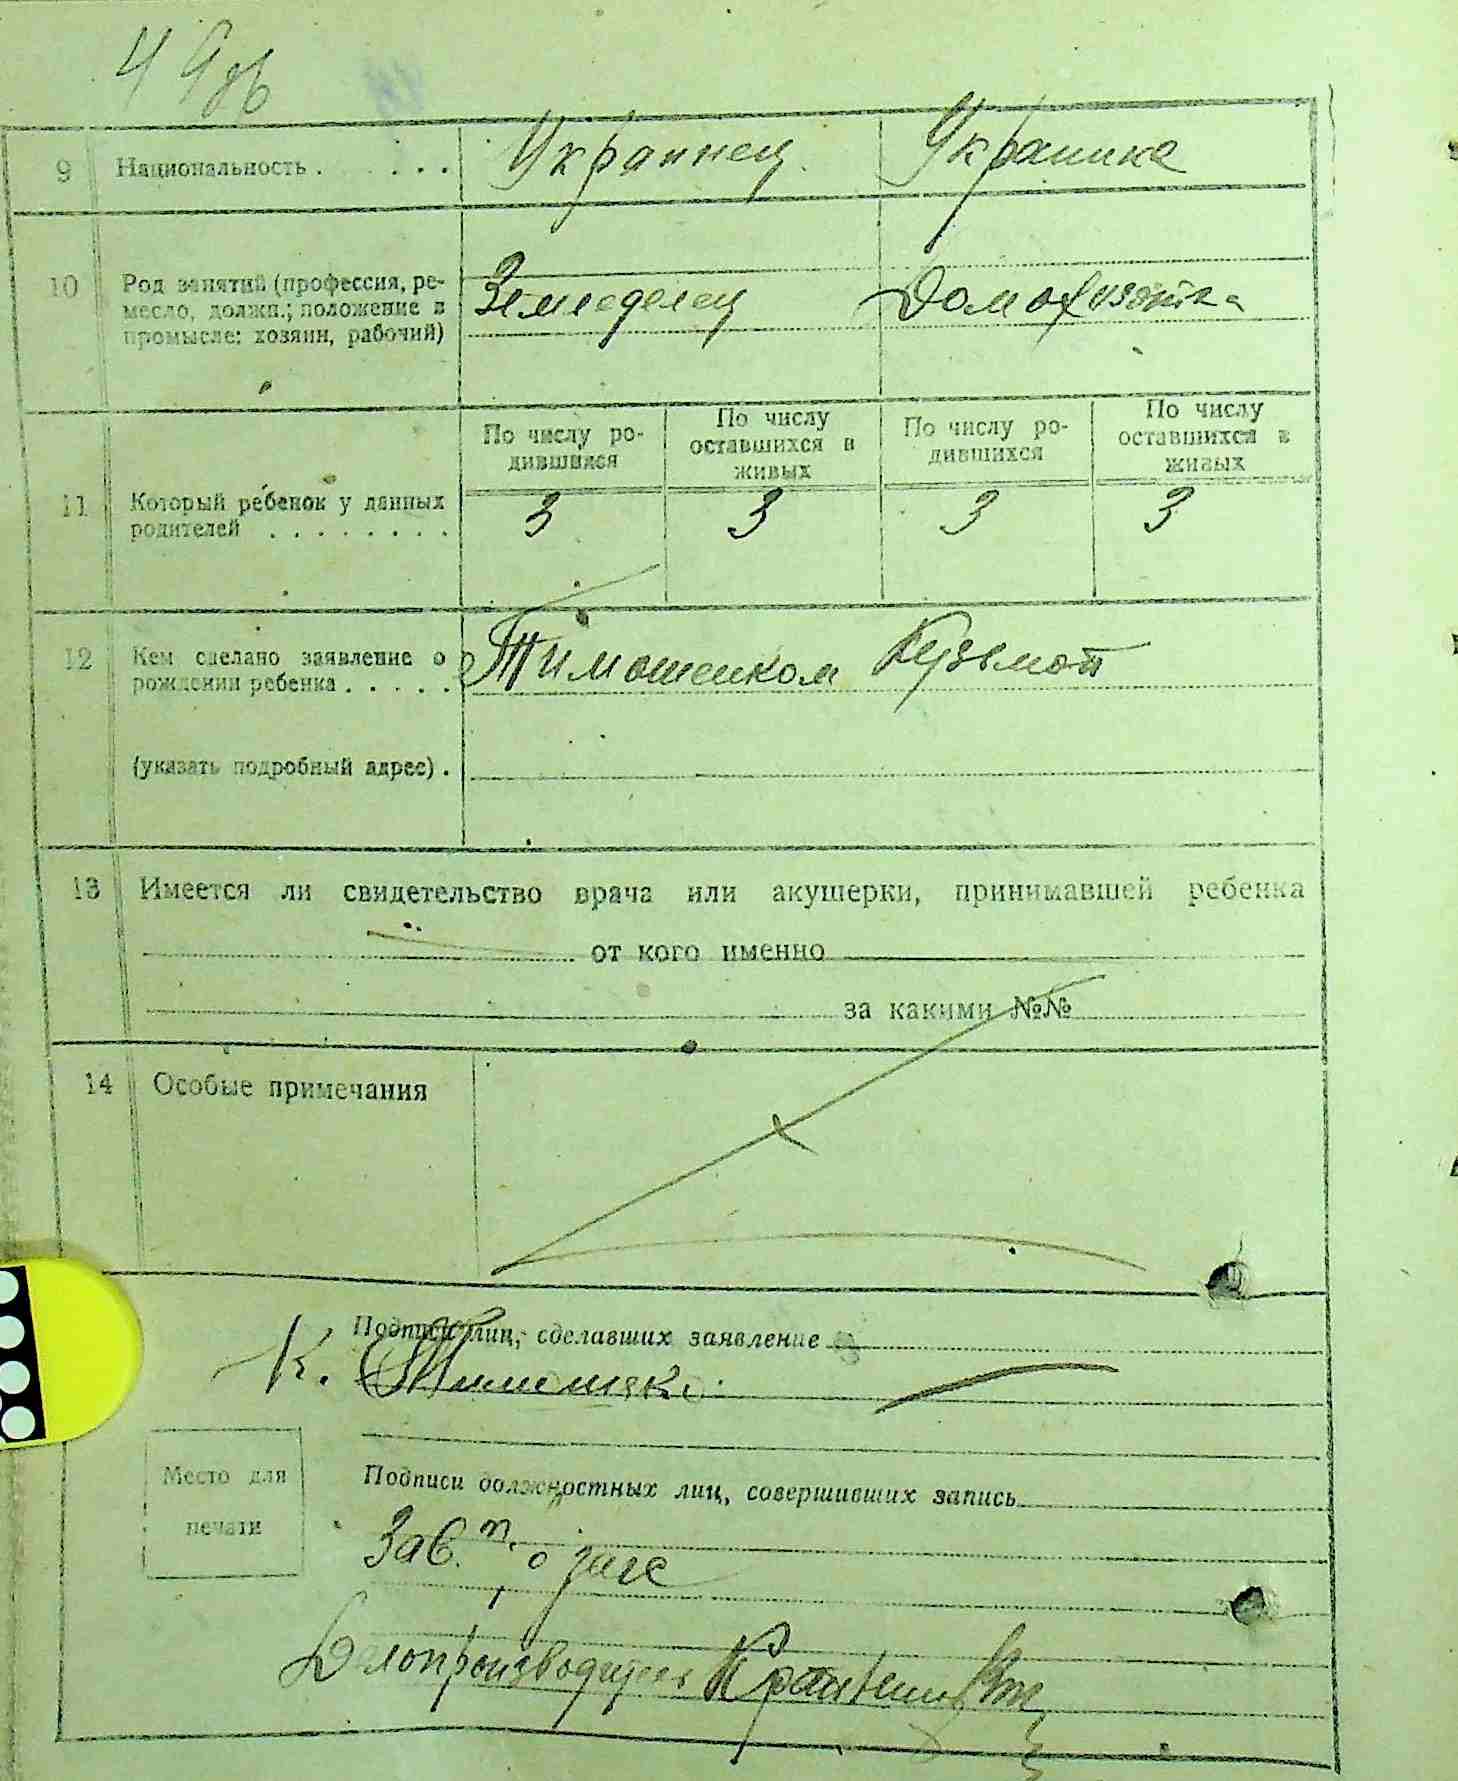 9 Национальность . . . . . Украинец Украинка
10 Род занятий (профессия, ре-
месло, должн.; положение в
промысле: хозяин, рабочий)
Земледелец Домохозяйка
11 Который ребенок у данных
родителей . . . . . . . .
По числу ро-
дившихся
По числу
оставшихся в
живых
По числу ро-
дившихся
По числу
оставшихся в
живых
3 3 3 3
12 Кем сделано заявление о
рождении ребенка . . . . .
Тимошенком Кузьмой
(указать подробный адрес) .
13 Имеется ли свидетельство врача или акушерки, принимавшей ребенка
от кого именно
за какими №№
14 Особые примечания
Подписи лиц, сделавших заявление
К. Тимошенко
Место для
печати
Подписи должностных лиц, совершивших запись
Зав. п/о загс
Делопроизводитель